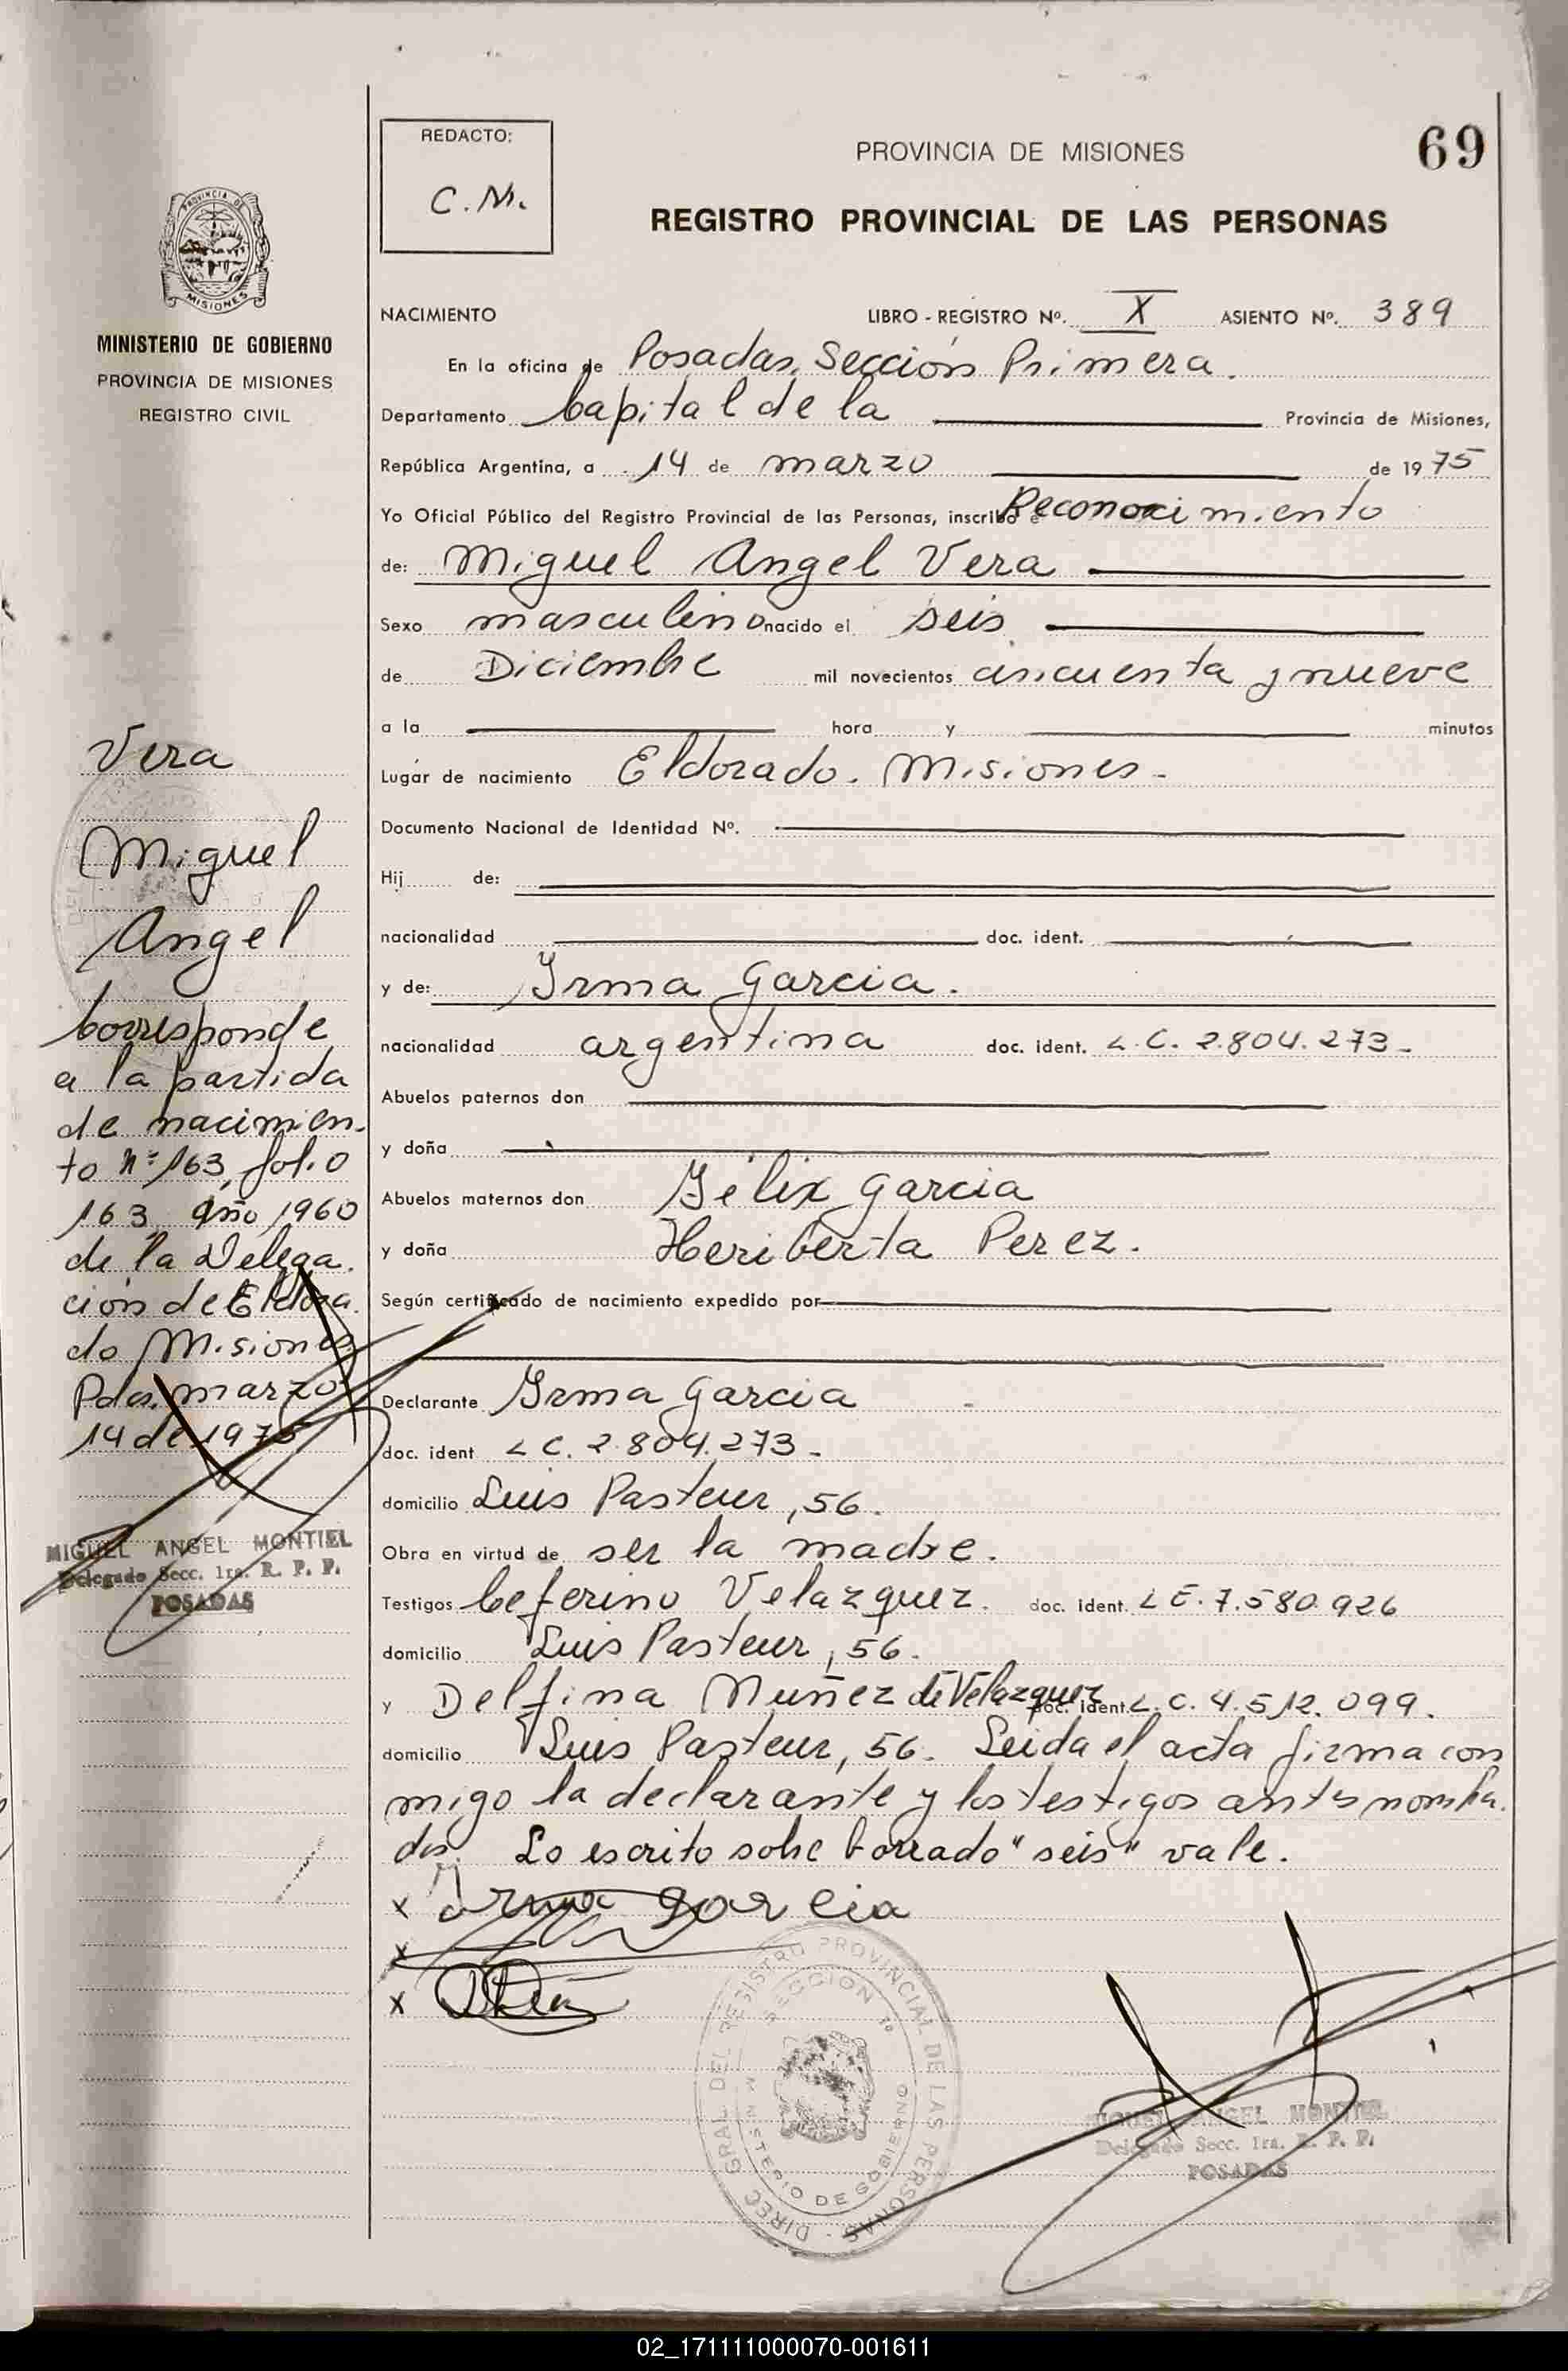 REDACTO:
C.M.
PROVINCIA DE MISIONES
69
REGISTRO PROVINCIAL DE LAS PERSONAS
PROVINCIA DE
MISIONES
MINISTERIO DE GOBIERNO
PROVINCIA DE MISIONES
REGISTRO CIVIL
NACIMIENTO LIBRO - REGISTRO Nº. X ASIENTO Nº. 389
En la oficina de Posadas, Sección Primera.
Departamento Capital de la Provincia de Misiones,
República Argentina, a 14 de marzo de 1975
Yo Oficial Público del Registro Provincial de las Personas, inscribo e Reconocimiento
de: Miguel Angel Vera
Sexo masculino nacido el seis
de Diciembre mil novecientos cincuenta y nueve
a la hora y minutos
Lugar de nacimiento Eldorado. Misiones.
Documento Nacional de Identidad Nº.
Hij de:
nacionalidad doc. ident.
y de: Irma Garcia.
nacionalidad argentina doc. ident. L.C. 2.804.273.
Abuelos paternos don
y doña
Abuelos maternos don Félix Garcia
y doña Heriberta Perez.
Según certificado de nacimiento expedido por
Declarante Irma Garcia
doc. ident L C. 2.804.273.
domicilio Luis Pasteur, 56.
Obra en virtud de ser la madre.
Testigos Ceferino Velazquez. doc. ident. L E. 7.580.926
domicilio Luis Pasteur, 56.
y Delfina Nuñez de Velazquez doc. ident. L.C. 4.512.099.
domicilio Luis Pasteur, 56. Leida el acta firma con
migo la declarante y los testigos antes nombra.
dos. Lo escrito sobre borrado "seis" vale.
x Irma Garcia
x
x
Vera
Miguel
Angel
Corresponde
a la partida
de nacimien-
to Nº 163, folio
163, año 1960
de la Delega.
ción de Eldora.
do Misiones
Pdas. marzo
14 de 1975
MIGUEL ANGEL MONTIEL
Delegado Secc. 1ra. R. P. P.
POSADAS
DIREC. GRAL. DEL REGISTRO PROVINCIAL DE LAS PERSONAS
SECCION 1º
MINISTERIO DE GOBIERNO
MIGUEL ANGEL MONTIEL
Delegado Secc. 1ra. R. P. P.
POSADAS
02_171111000070-001611